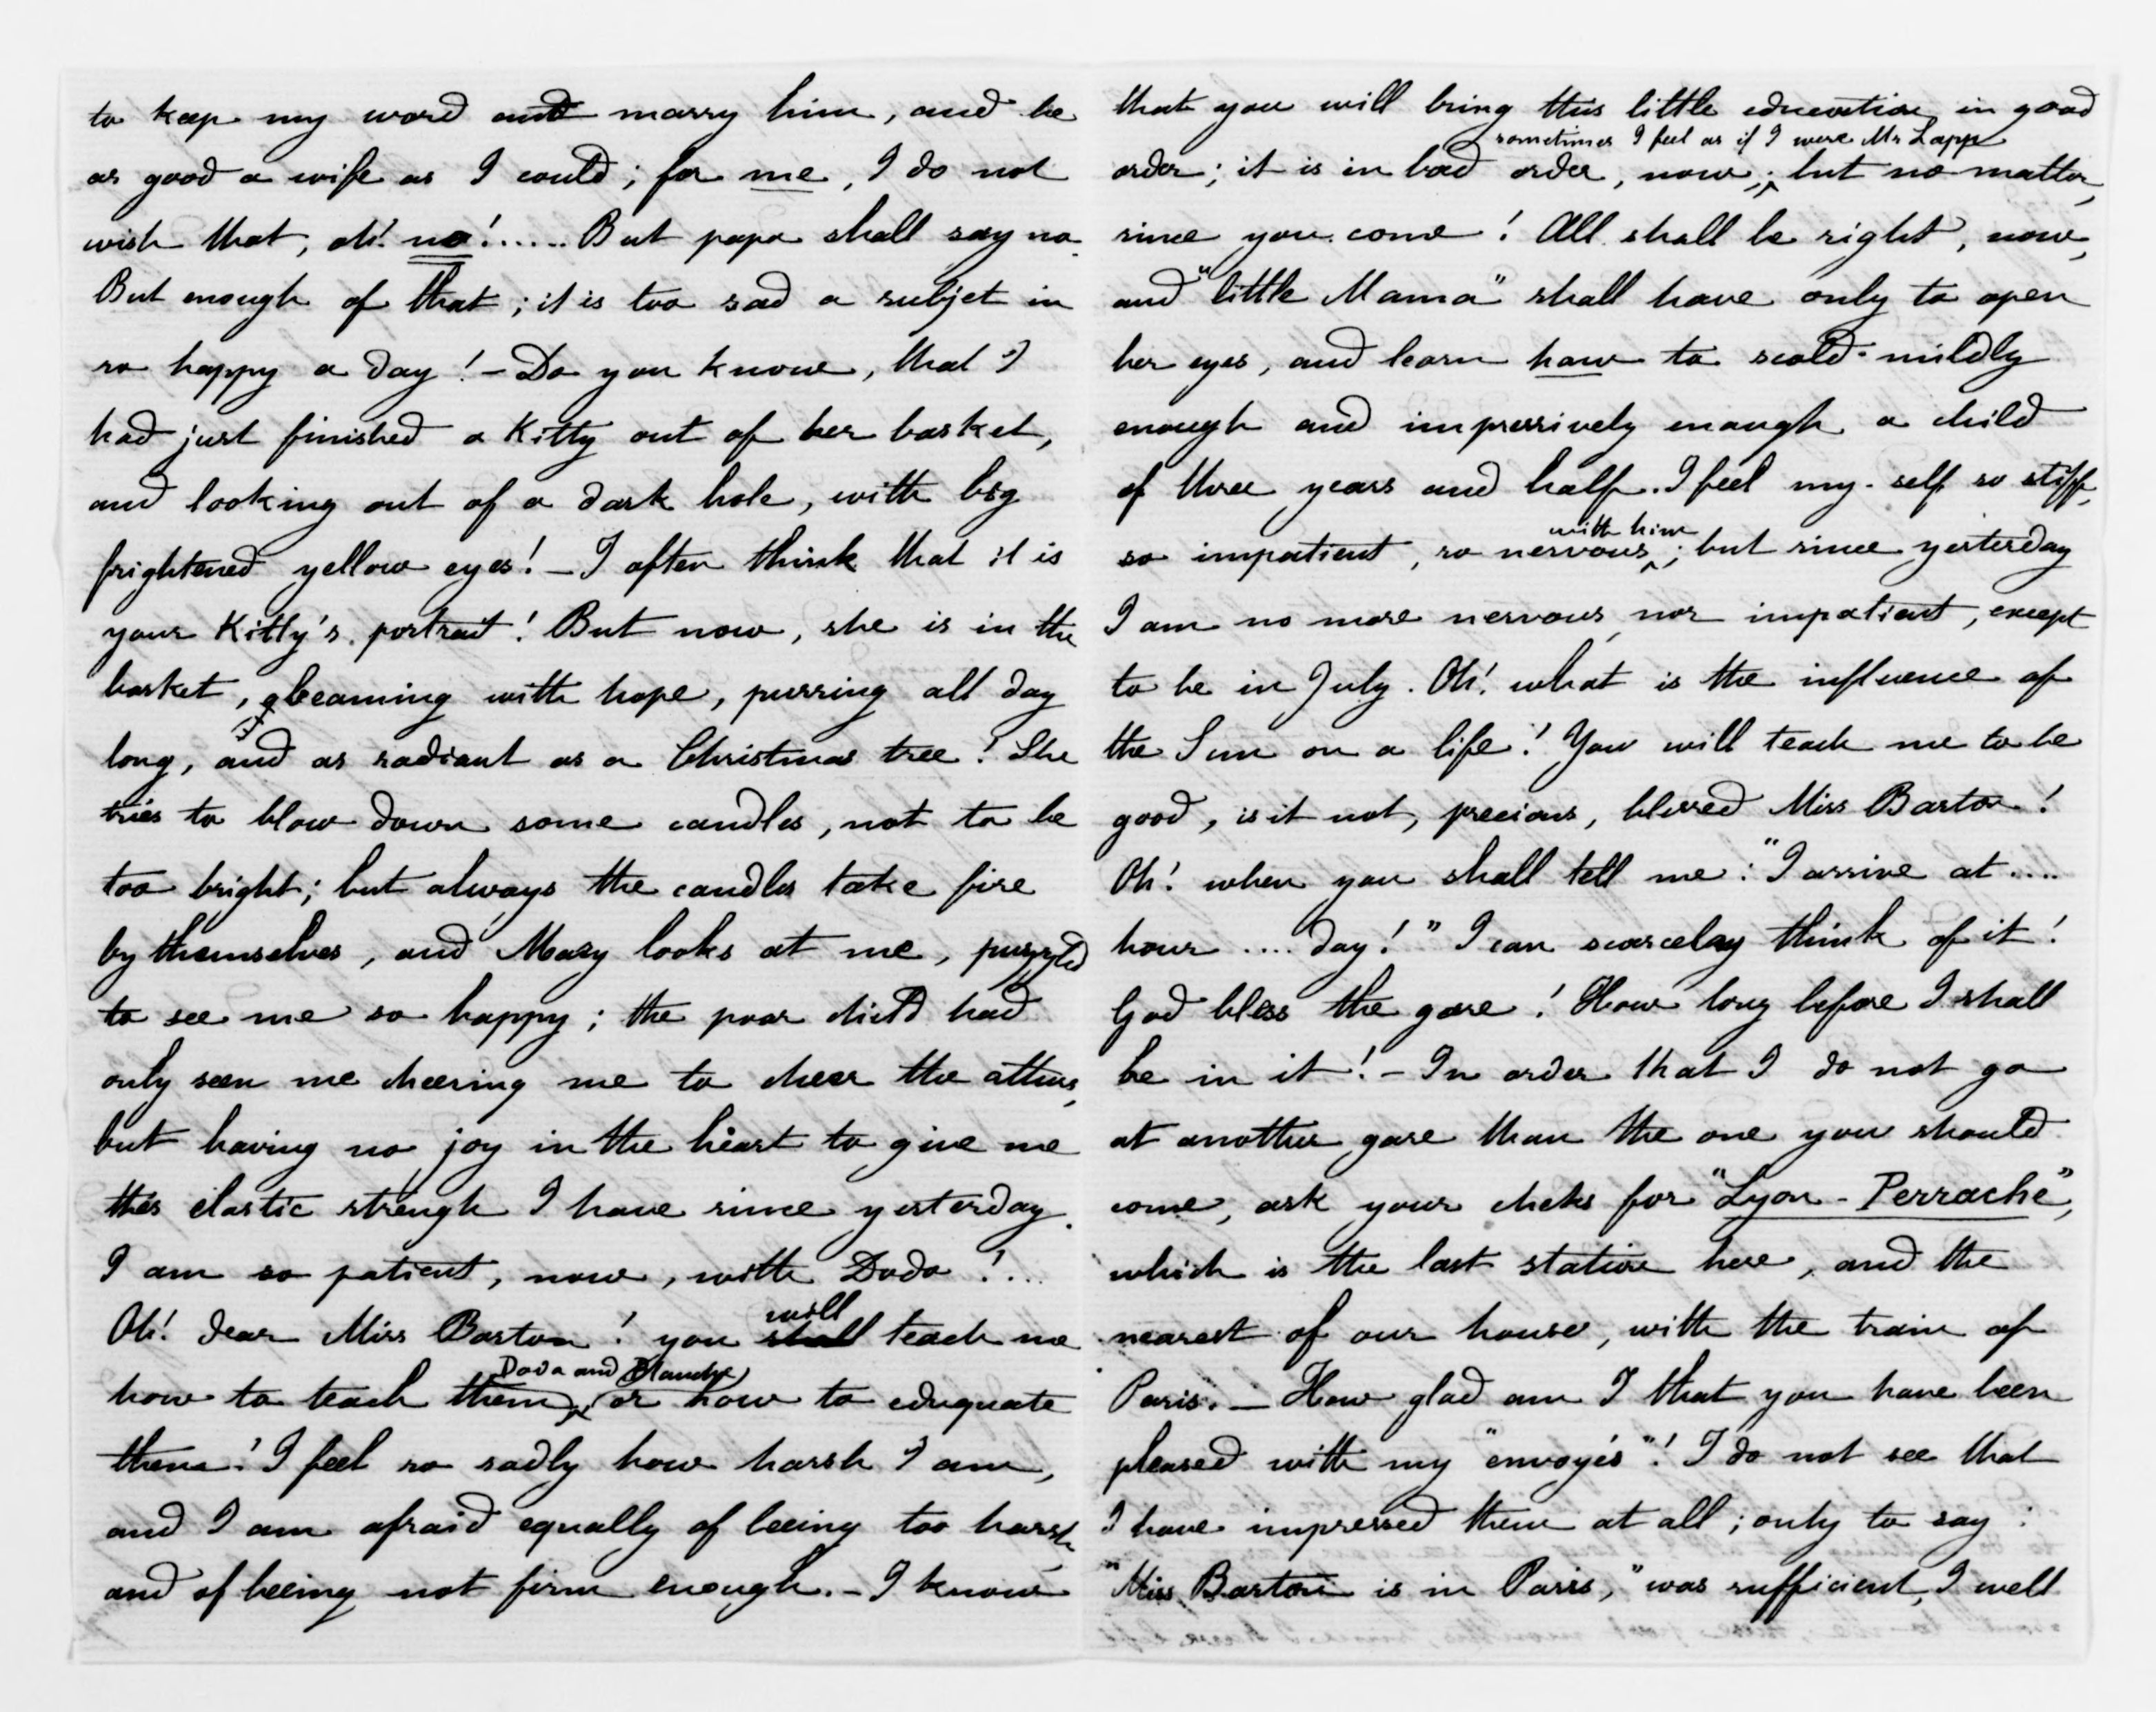 to keep my word and marry him, and be
as good a wife as I could; for me, I do not
wish that, oh! no!..... But papa shall say no.
But enough of that; it is too sad a subjet in
so happy a day! - Do you know, that I
had just finished a Kitty out of her basket,
and looking out of a dark hole, with big
frightened yellow eyes! - I often think that it is
your Kitty's portrait! But now, she is in the
basket, gleaming with hope, purring all day
long, and as radiant as a Christmas tree! She
tries to blow down some candles, not to be
too bright; but always the candles take fire
by themselves, and Mary looks at me, puzzled
to see me so happy; the poor child had
only seen me cheering me to cheer the others,
but having no joy in the heart to give me
this elastic strengh I have since yesterday.
I am so patient, now, with Dodo!...
will
Oh! dear Miss Barton! you shall teach me
Dodo and Blanche
how to teach them, or how to educuate
them! I feel so sadly how harsh I am,
and I am afraid equally of beeing too harsh,
and of beeing not firm enough. - I know
that you will bring this little education in good
sometimes I feel as if I were Mr Lapp
order; it is in bad order, now; but no matter,
since you come! All shall be right, now,
and "little Mama" shall have only to open
her eyes, and learn how to scold mildly
enough and impressively enough a child
of three years and half. I feel my-self so stiff,
with him
so impatient, so nervous; but since yesterday
I am no more nervous, nor impatient, except
to be in July. Oh! what is the influence of
the Sun on a life! You will teach me to be
good, is it not, precious, blessed Miss Barton!
Oh! when you shall tell me: "I arrive at ....
hour .... day!" I can scarcelay think of it!
God bless the gare! How long before I shall
be in it! - In order that I do not go
at another gare than the one you should
come, ask your cheks for "Lyon - Perrache",
which is the last station here, and the
nearest of our house, with the train of
Paris. - How glad am I that you have been
pleased with my "envoyés"! I do not see that
I have impressed them at all; only to say:
"Miss Barton is in Paris," was sufficient, I well